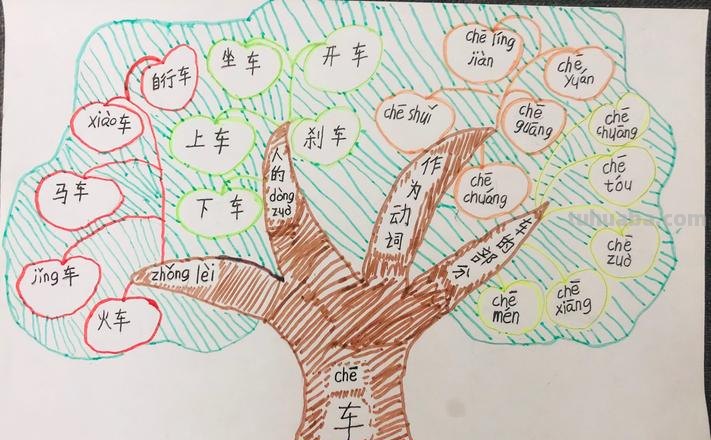 自行车
xiào车
马车
jǐng车
火车
zhǒng lèi
坐车
开车
上车
刹车
下车
人的dòng zuò
chē líng
jiàn
chē
yuán
chē shuǐ
chē
guāng
chē
chuáng
作为动词
chē
chuāng
chē
tóu
chē
zuò
chē
xiāng
chē
mén
车的部分
chē
车
tuhuaba.com